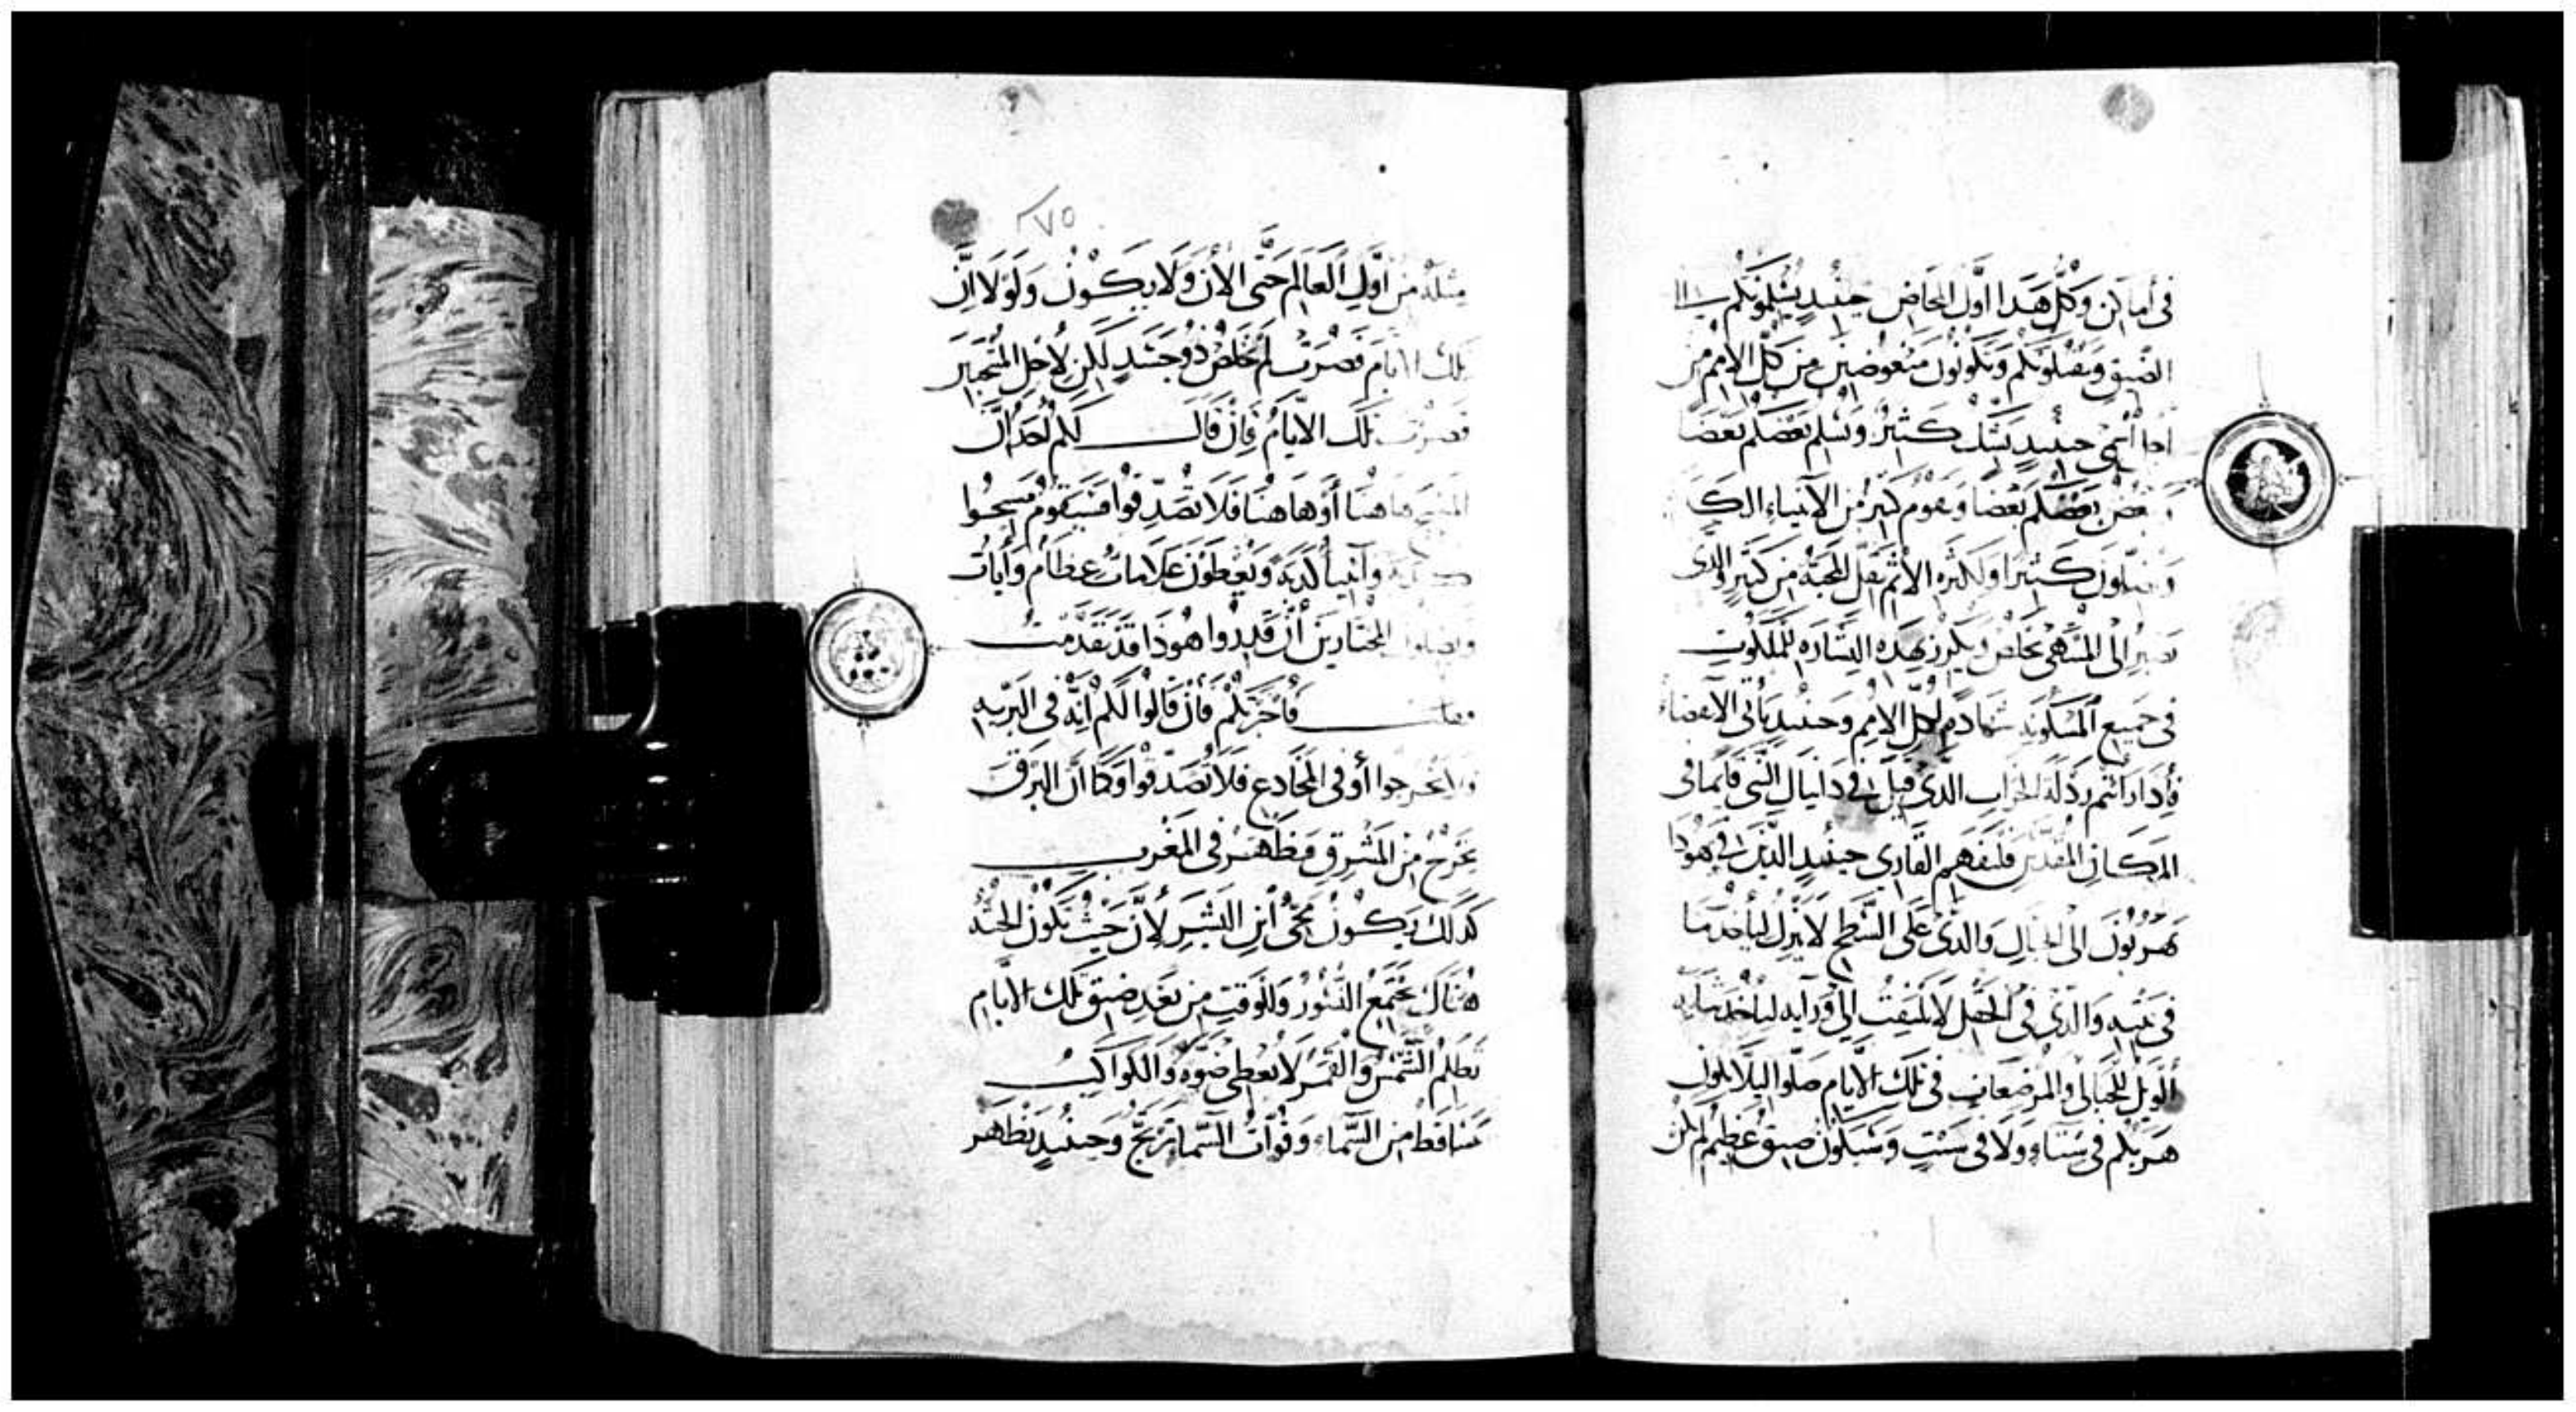 في أماكن وكل هذا اول المخاض حينيدٍ يسلمونكم الى
الضيق ويقتلونكم وتكونون مبغوضين من كل الامم من
اجل اسمي حينيدٍ يشك كثيرٌ ويسلم بعضكم بعضًا
ويبغض بعضكم بعضًا ويقوم كثيرٌ من الانبياء الكـ
ويضلون كثيرًا ولكثره الاثم تقل المحبة من كثير والذى
يصبر إلى المنتهى يخلص ويكرز بهذه البشاره للملكوت
في جميع المسكونه شهادةٍ لكل الامم وحينيدٍ يأتى الانقضاء
فأدا رأيتم ردلة الخراب الدى قيل فى دانيال النبي قايما في
المكان المقدس فليفهم القاري حينيدٍ الذين في يهودا
يهربون الى الجبال والدى على السطح لا ينزل ليأخد ما
في بيته والدي في الحقل لا يلتفت الى ورآيه ليأخد ثيابه
ألويل للحبالى والمرضعات في تلك الايام صلّوا ليلا يكون
هربكم في شتاءٍ ولا في سبتٍ وسيكون ضيق عظيم لم يكن
٢٧٥
مثله من اول العالم حتى الان ولا يكون ولولا ان
تلك الايام قصرت لم يخلص ذو جسدٍ لكن لاجل المنتجبين
قصرت تلك الايام فإن قال لكم احد ان
المسيح هاهنا أو هاهنا فلا تصدقوا فسيقوم مسيحوا
كدبه وآنبيا كدبة ويعطون علامات عظام وأيات
ويضلون المختارين أن قدروا هودا قد تقدمت
فأخبرتكم فأن قالوا لكم انه في البريه
فلا تخرجوا أو في المخادع فلا تصدقوا وكما ان البرق
يخرج من المشرق فيظهر في المغرب
كدلك يكون مجى أبن البشر لأن حيث تكون الجثة
هناك تجتمع النسور وللوقت من بعد ضيق تلك الايام
تظلم الشمس والقمر لا يعطي ضوه والكواكب
تتساقط من السماء وقوات السما ترتج وحينيدٍ يظهر